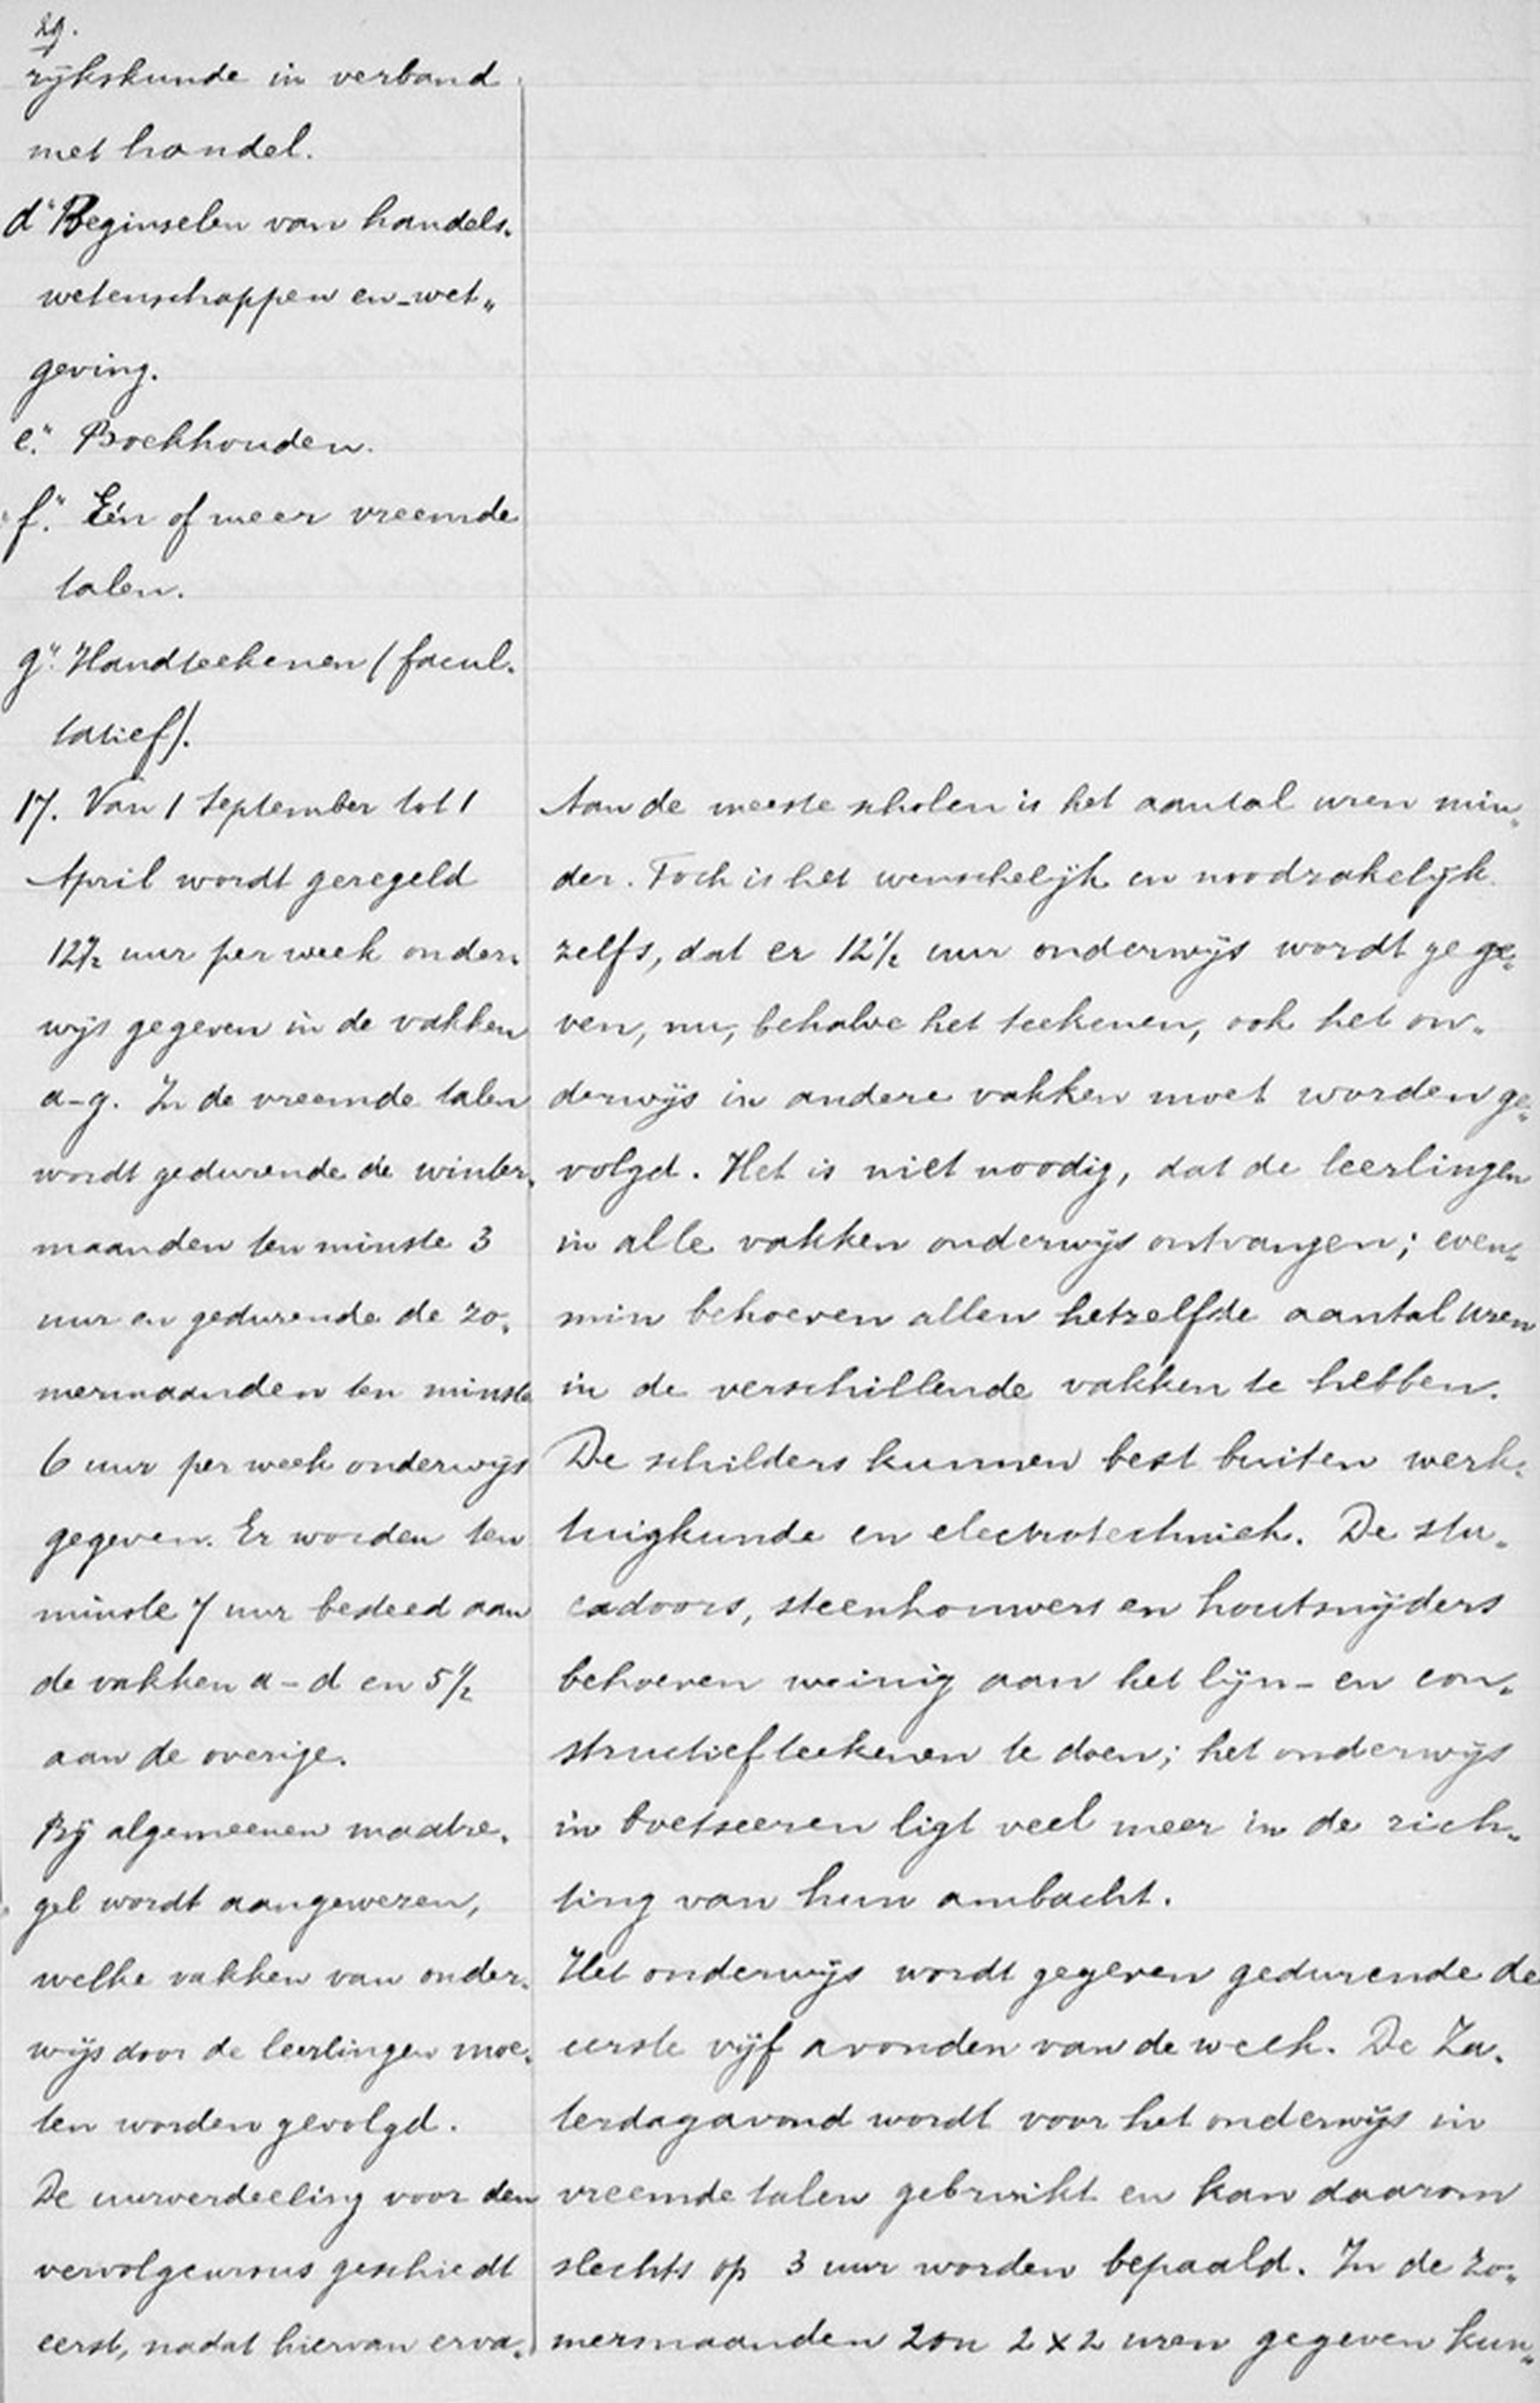 29.
rijkskunde in verband
met handel.
d" Beginselen van handels-
wetenschappen en -wet-
geving.
e." Boekhouden.
f." Eén of meer vreemde
talen.
g". Handteekenen (facul-
tatief).
17. Van 1 September tot 1
April wordt geregeld
12½ uur per week onder-
wijs gegeven in de vakken
a-g. In de vreemde talen
wordt gedurende de winter-
maanden ten minste 3
uur en gedurende de zo-
mermaanden ten minste
6 uur per week onderwijs
gegeven. Er worden ten
minste 7 uur besteed aan
de vakken a-d en 5½
aan de overige.
Bij algemeenen maatre-
gel wordt aangewezen,
welke vakken van onder-
wijs door de leerlingen moe-
ten worden gevolgd.
De uurverdeeling voor den
vervolgcursus geschiedt
eerst, nadat hiervan erva-
Aan de meeste scholen is het aantal uren min-
der. Toch is het wenschelijk en noodzakelijk
zelfs, dat er 12½ uur onderwijs wordt gege-
ven, nu, behalve het teekenen, ook het on-
derwijs in andere vakken moet worden ge-
volgd. Het is niet noodig, dat de leerlingen
in alle vakken onderwijs ontvangen; even-
min behoeven allen hetzelfde aantal uren
in de verschillende vakken te hebben.
De schilders kunnen best buiten werk-
tuigkunde en electrotechniek. De stu-
cadoors, steenhouwers en houtsnijders
behoeven weinig aan het lijn- en con-
structiefteekenen te doen; het onderwijs
in boetseeren ligt veel meer in de rich-
ting van hun ambacht.
Het onderwijs wordt gegeven gedurende de
eerste vijf avonden van de week. De Za-
terdagavond wordt voor het onderwijs in
vreemde talen gebruikt en kan daarom
slechts op 3 uur worden bepaald. In de zo-
mermaanden zou 2 x 2 uren gegeven kun-